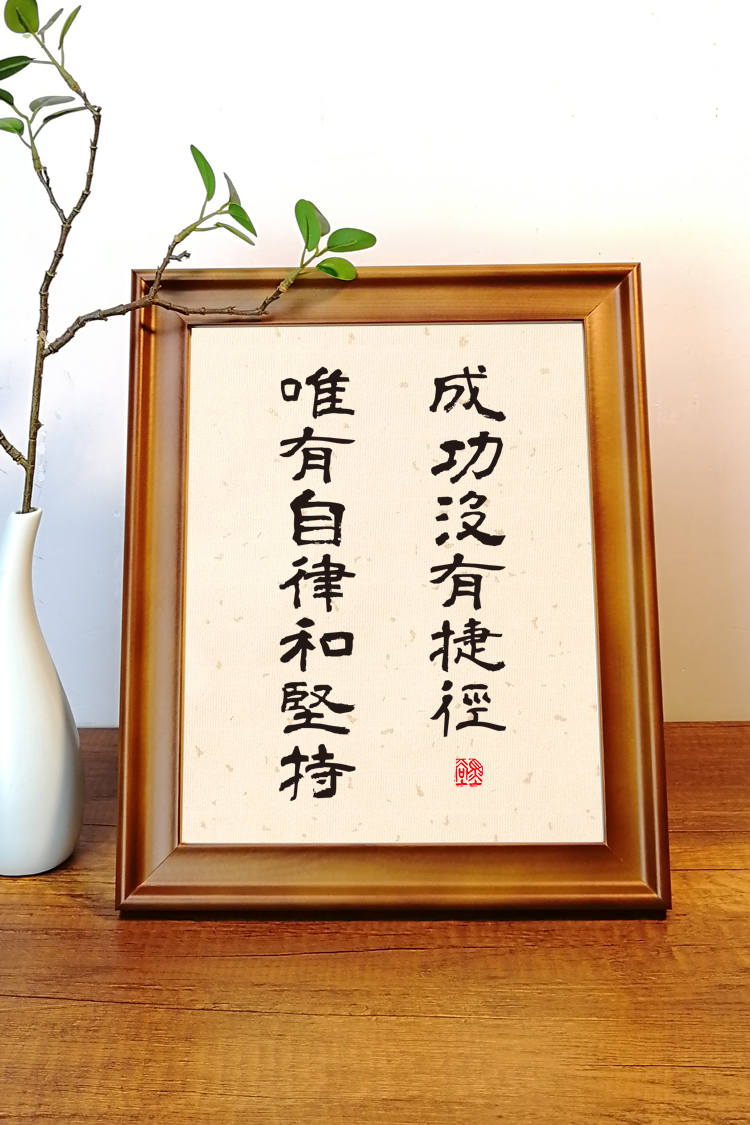 成功沒有捷徑
唯有自律和堅持